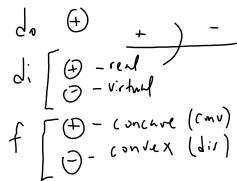 d₀ ⊕
+ -
di ⊕ - real
⊖ - virtual
f ⊕ - concave (cnv)
⊖ - convex (div)